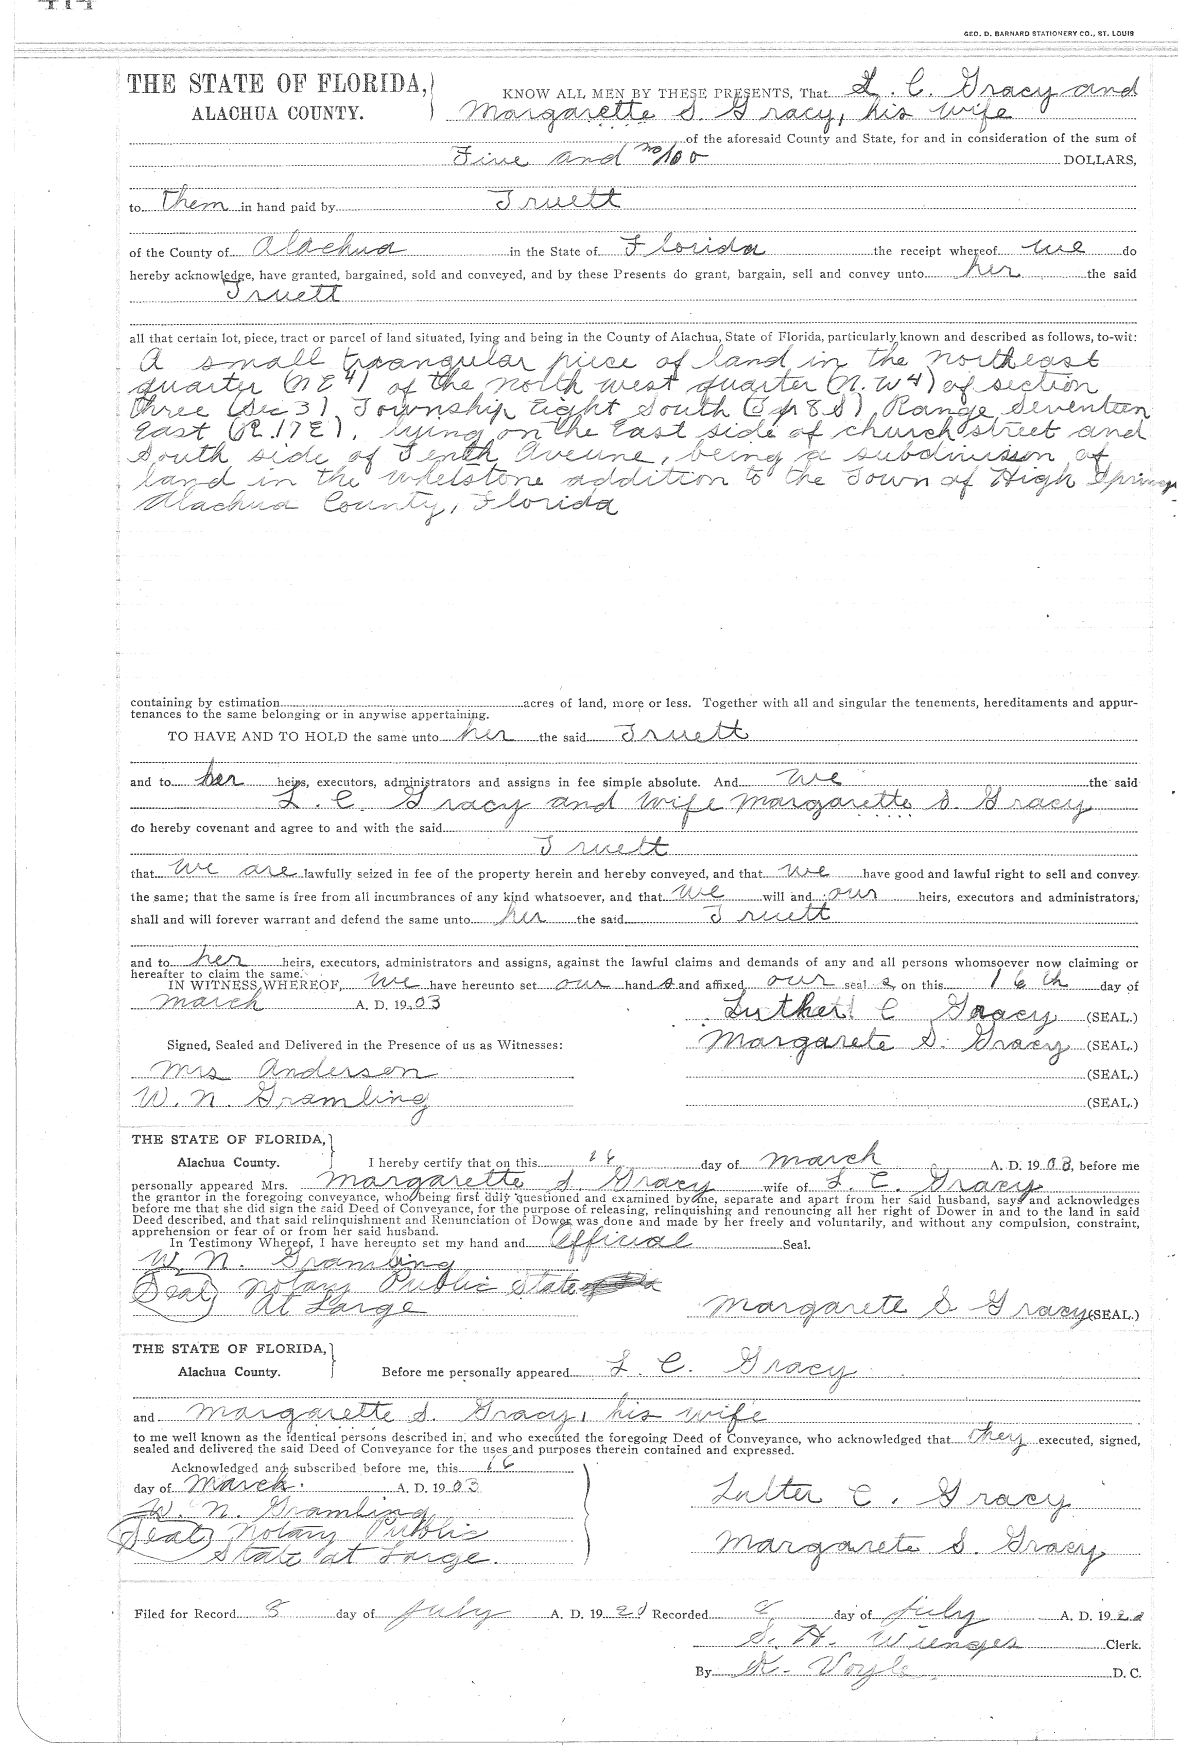 GEO. D. BARNARD STATIONERY CO., ST. LOUIS
THE STATE OF FLORIDA,
ALACHUA COUNTY.
KNOW ALL MEN BY THESE PRESENTS, That L. C. Gracy and
Margarette S. Gracy, his wife
of the aforesaid County and State, for and in consideration of the sum of
Five and no/100 DOLLARS,
to Them in hand paid by Truett
of the County of Alachua in the State of Florida the receipt whereof we do
hereby acknowledge, have granted, bargained, sold and conveyed, and by these Presents do grant, bargain, sell and convey unto her the said
Truett
all that certain lot, piece, tract or parcel of land situated, lying and being in the County of Alachua, State of Florida, particularly known and described as follows, to-wit:
A small traangular piece of land in the northeast
quarter (NE4) of the north west quarter (N.W4) of section
three (Sec 3) Township Eight South (Tp 8S), Range Seventeen
East (R.17E), lying on the East side of church street and
South side of Tenth Aveune, being a subdivision of
land in the whetstone addition to the Town of High Springs
Alachua County, Florida
containing by estimation acres of land, more or less. Together with all and singular the tenements, hereditaments and appur-
tenances to the same belonging or in anywise appertaining.
TO HAVE AND TO HOLD the same unto her the said Truett
and to her heirs, executors, administrators and assigns in fee simple absolute. And we the said
L. C. Gracy and wife Margarette S. Gracy
do hereby covenant and agree to and with the said
Truett
that we are lawfully seized in fee of the property herein and hereby conveyed, and that we have good and lawful right to sell and convey
the same; that the same is free from all incumbrances of any kind whatsoever, and that we will and our heirs, executors and administrators,
shall and will forever warrant and defend the same unto her the said Truett
and to her heirs, executors, administrators and assigns, against the lawful claims and demands of any and all persons whomsoever now claiming or
hereafter to claim the same.
IN WITNESS WHEREOF, We have hereunto set our hand s and affixed our seal s on this 16th day of
March A. D. 1903
Luther C Gracy (SEAL.)
Signed, Sealed and Delivered in the Presence of us as Witnesses: Margarete S. Gracy (SEAL.)
Mrs Anderson (SEAL.)
W. N. Gramling (SEAL.)
THE STATE OF FLORIDA,
Alachua County. I hereby certify that on this 16 day of March A. D. 1903, before me
personally appeared Mrs. Margarette S. Gracy wife of L. C. Gracy
the grantor in the foregoing conveyance, who being first duly questioned and examined by me, separate and apart from her said husband, says and acknowledges
before me that she did sign the said Deed of Conveyance, for the purpose of releasing, relinquishing and renouncing all her right of Dower in and to the land in said
Deed described, and that said relinquishment and Renunciation of Dower was done and made by her freely and voluntarily, and without any compulsion, constraint,
apprehension or fear of or from her said husband.
In Testimony Whereof, I have hereunto set my hand and Official Seal.
W. N. Gramling
Seal Notary Public State
At Large Margarete S Gracy (SEAL.)
THE STATE OF FLORIDA,
Alachua County. Before me personally appeared L. C. Gracy
and Margarette S. Gracy, his wife
to me well known as the identical persons described in, and who executed the foregoing Deed of Conveyance, who acknowledged that they executed, signed,
sealed and delivered the said Deed of Conveyance for the uses and purposes therein contained and expressed.
Acknowledged and subscribed before me, this 16
day of March. A. D. 1903
Lulter C. Gracy
W. N. Gramling
Seal Notary Public
State at Large.
Margarete S. Gracy
Filed for Record 8 day of July A. D. 1920 Recorded 8 day of July A. D. 1920
S. H. Wienges Clerk.
By K. Voyle D. C.